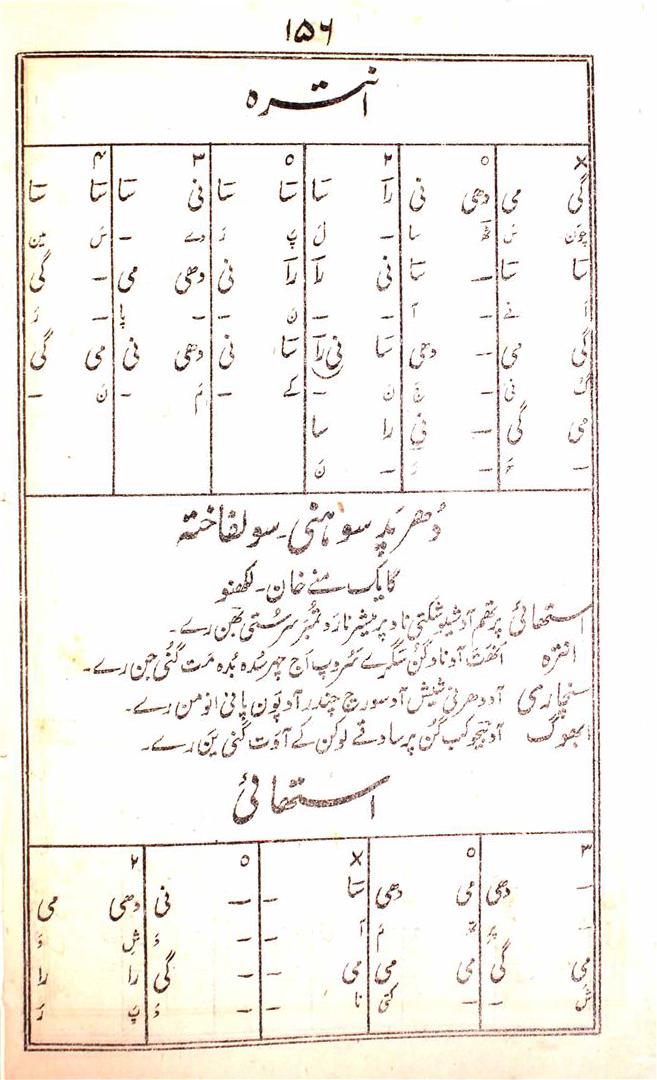 ۱۵۶
انترہ
× ۵ ۲ ۵ ۳ ۴
گی می دھی نی رآ سَا سَا سَا نی سَا سَا سَا
چون سَ ھَ سا - ل پ رَ دے - سَ مین
سَا سَا - سَا نی رآ رآ نی دھی می - گی
نے - آ - - ن - - پا - رَ
گی می - دھی سَا نی رآ سَا نی دھی نی می گی
نی - ن - کے - مَ - نَ -
می گی - نی رآ سا
- - - نَ
دُھرپد سوہنی۔ سولفاختہ
گایک منے خان۔ لکھنو
استھائی پرتھم آد شیو شکتی ناد پرمیشر نارد تمبر سرستی بھن رے۔
انترہ انحت آد ناد گن سگرے سروپ آج چہر سدہ بدہ مت گنی جن رے۔
سنچاری آد دھرنی شیش آد سورج چندر آد پون پانی انومن رے۔
ابھوگ کب گن پرسادقے لوکن کے آوت گنی ین رے۔
استھائی
۳ ۵ × ۵ ۲
- دھی می دھی سَا - - نی دھی می
- پر تھ م آ - - دَ شِ وَ
می گی می می می - - گی رآ رآ
شَ - - کتی نا - - دَ پ رَ